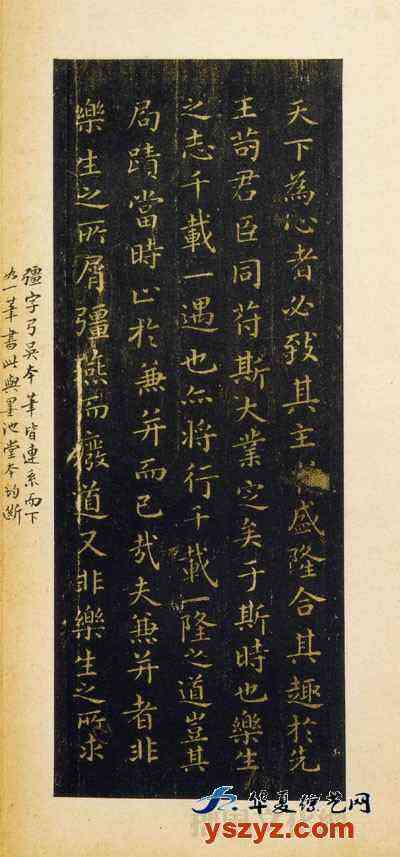 天下為心者必致其主於盛隆合其趣於先
王苟君臣同符斯大業定矣于斯時也樂生
之志千載一遇也亦將行千載一隆之道豈其
局蹟當時止於兼并而已哉夫兼并者非
樂生之所屑彊燕而廢道又非樂生之所求
彊字弓吳本筆皆連系而下
為一筆書此與墨池堂本均斷
华夏综艺网
yszyz.com